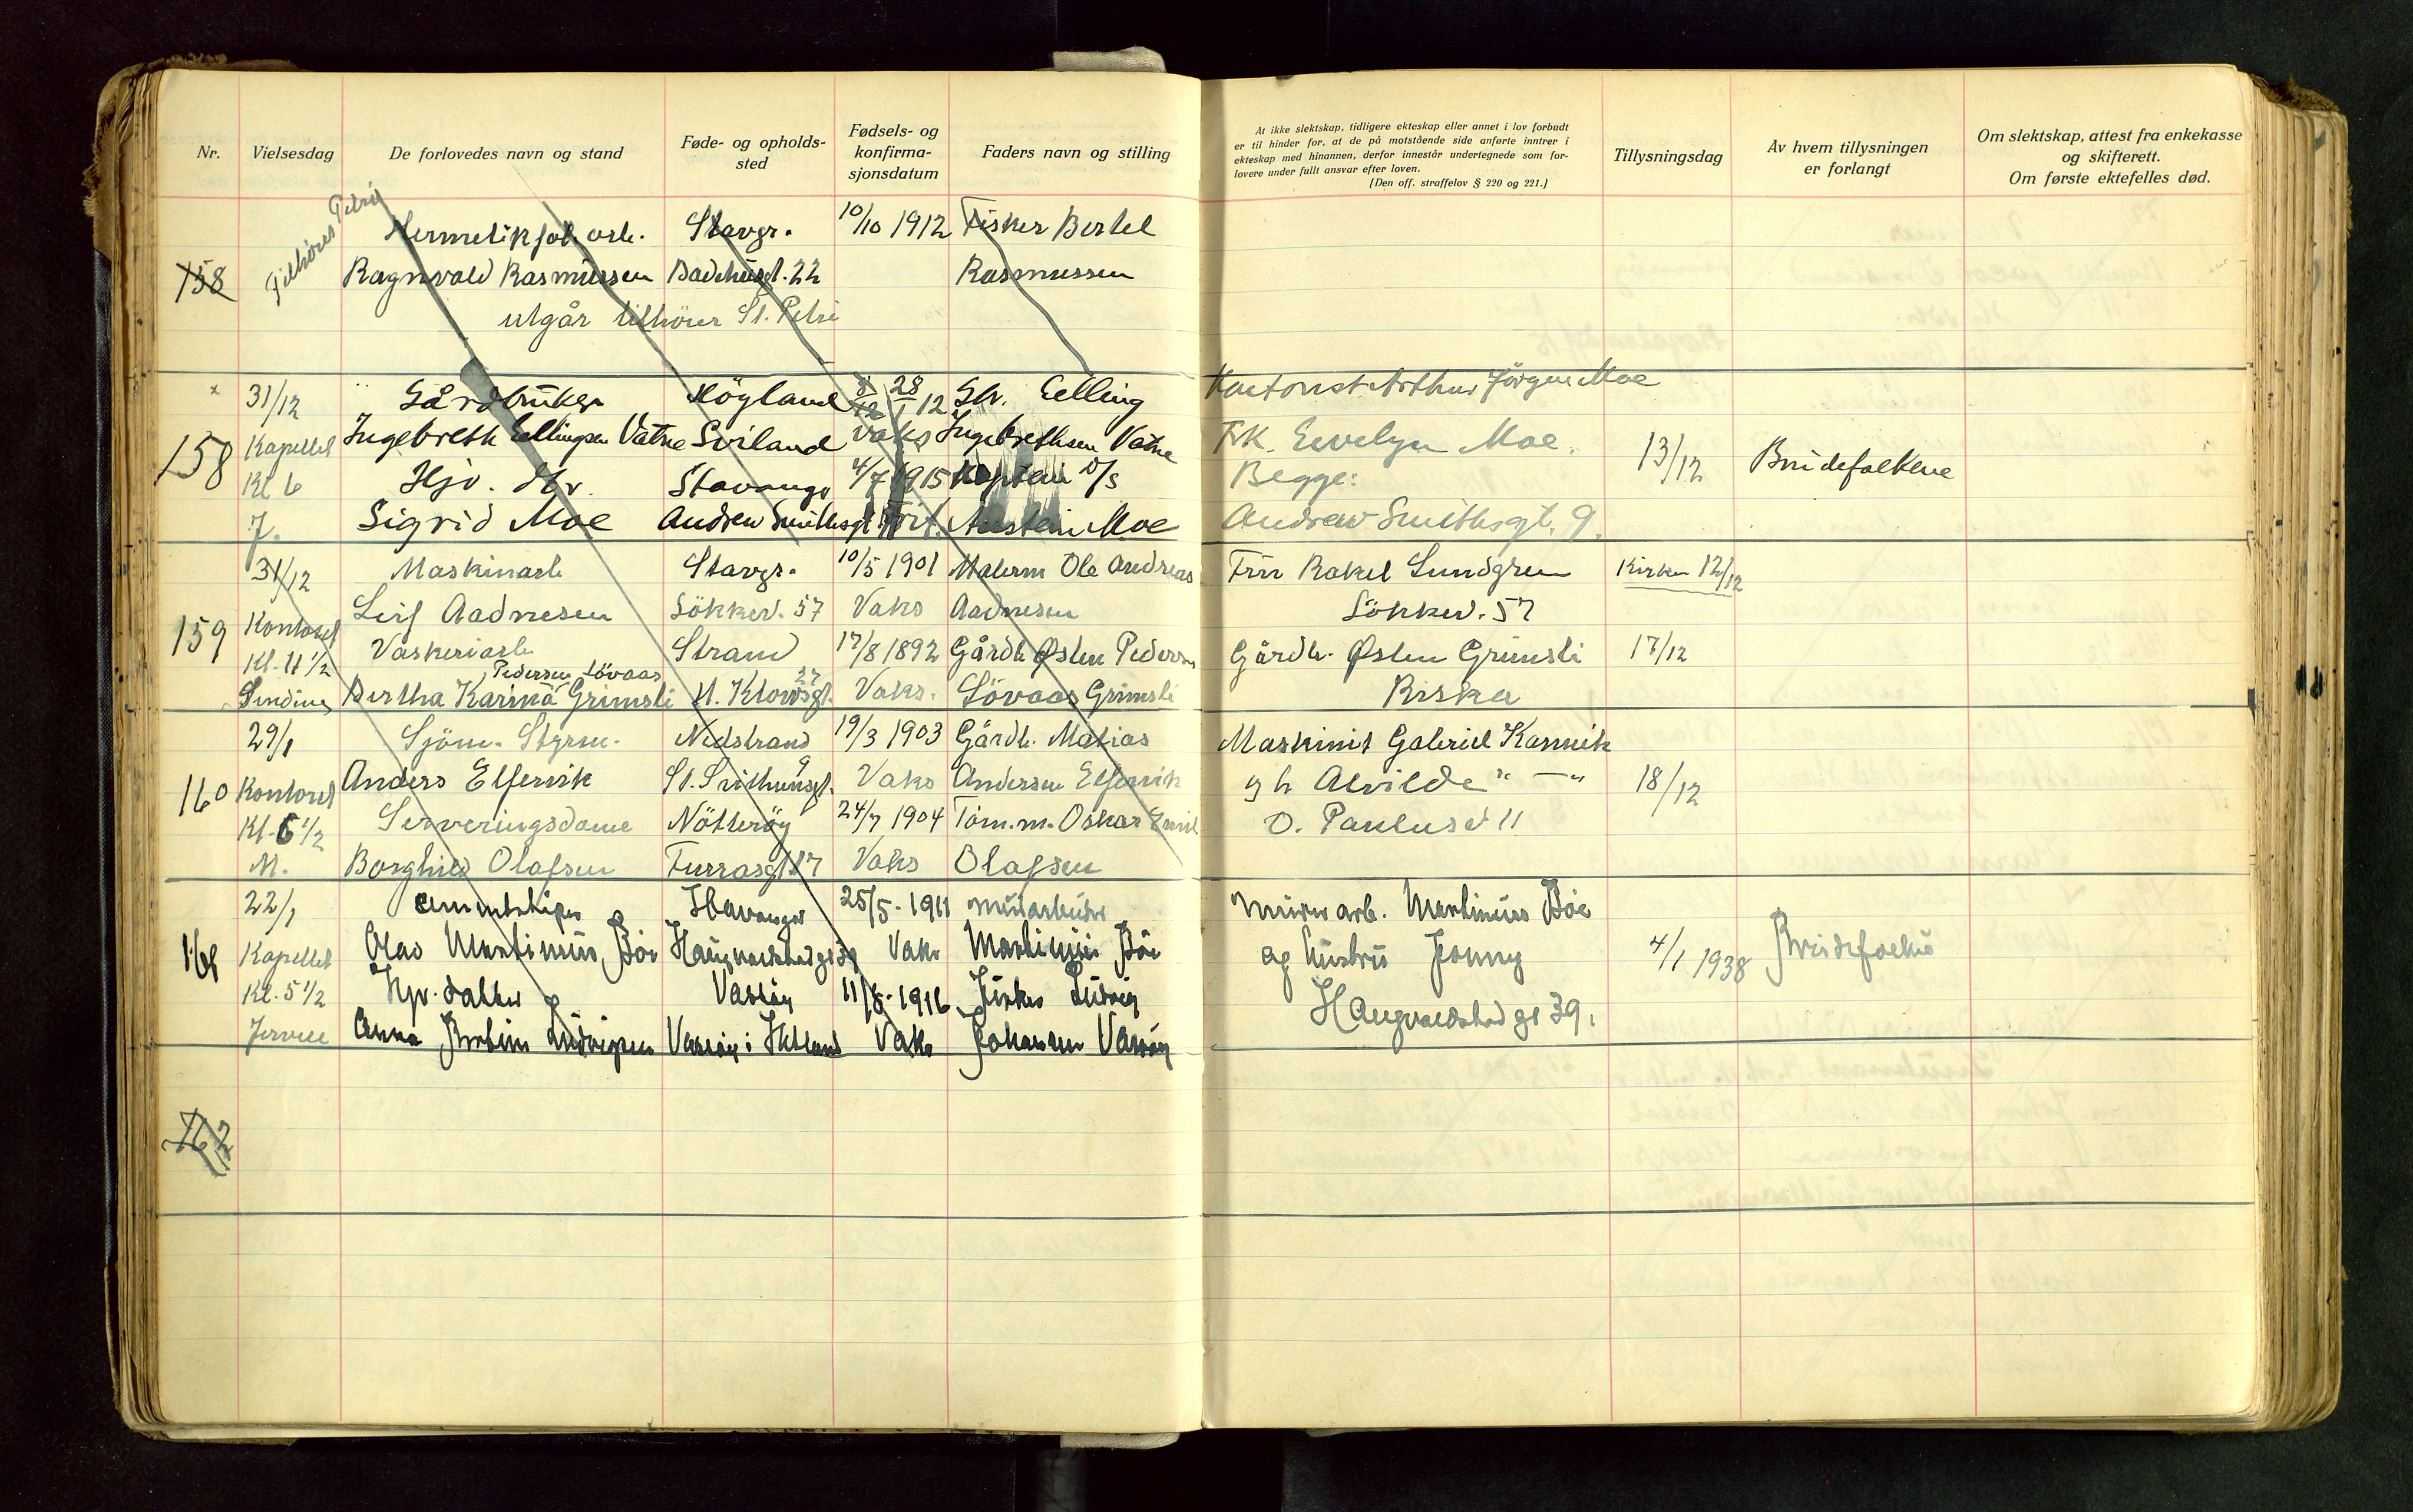 Nr.
Vielsesdag
De forlovedes navn og stand
Føde- og opholds-
sted
Fødsels- og
konfirma-
sjonsdatum
Faders navn og stilling
At ikke slektskap, tidligere ekteskap eller annet i lov forbudt
er til hinder for, at de på motstående side anførte inntrer i
ekteskap med hinannen, derfor innestår undertegnede som for-
lovere under fullt ansvar efter loven.
(Den off. straffelov § 220 og 221.)
Tillysningsdag
Av hvem tillysningen
er forlangt
Om slektskap, attest fra enkekasse
og skifterett.
Om første ektefelles død.
158
Tilhører Petri
Hermetikfab. arb. Stavgr. 10/10 1912 Fisker Bertel
Ragnvald Rasmussen Badehusgt. 22 Rasmussen
utgår tilhører St. Petri
x 31/12 Gårdbruker Høyland 8/12 28/1 12 Gbr. Elling
158 Kapellet Ingebreth Ellingsen Vatne Sviland Vaks Ingebrethsen Vatne
Kl 6 Hjv. Str. Stavanger 4/7 1915 Kaptein D/S
J. Sigrid Moe Andrew Smithsgt. Frit. Austein Moe
Kontorist Arthur Jørgen Moe
Frk. Eevelyn Moe.
Begge:
Andrew Smithsgt. 9.
13/12
Brudefolkene
31/12 Maskinarb Stavgr. 10/5 1901 Malerm Ole Andreas
159 Kontoret Leif Aadnesen Løkkev. 57 Vaks Aadnesen
Kl. 11 1/2 Vaskeriarb Strand 17/8 1892 Gårdb Østen Pedersen
Pedersen Løvaas 27
Sindines Bertha Karina Grimsli N. Klowsgt. Vaks. Løvaas Grimsli
Fru Rakel Lundgren Kirken 12/12
Løkkev. 57
Gårdb. Østen Grimsli 17/12
Riska
29/1 Sjøm. Styrm. Nedstrand 19/3 1903 Gårdb. Matias
160 Kontoret Anders Elfervik St. Svithunsgt. 9 Vaks Andersen Elfervik
Kl. 6 1/2 Serveringsdame Nøtterøy 24/7 1904 Tøm.m. Oskar Emil
M. Borghild Olafsen Furrasgt. 17 Vaks Olafsen
Maskinist Gabriel Karnvik
g h Alvilde " — "
O. Paulusst 11
18/12
22/1 Stavanger 25/5 - 1911 murarbeider
161 Kapellet Olav Martinius Bøe Haugvaldstadgt 39 Vaks Martinius Bøe
Kl. 5 1/2 Hjv. datter Vassøy 11/8 - 1916 Fisker Ludvig
Anna Ludvigsen Vassøy i Hetland Vaks Johansen Vassøy
Murer arb. Martinius Bøe
og hustru Jonny
Haugvaldstad gt 39.
4/1 1938
Brudefolket
162